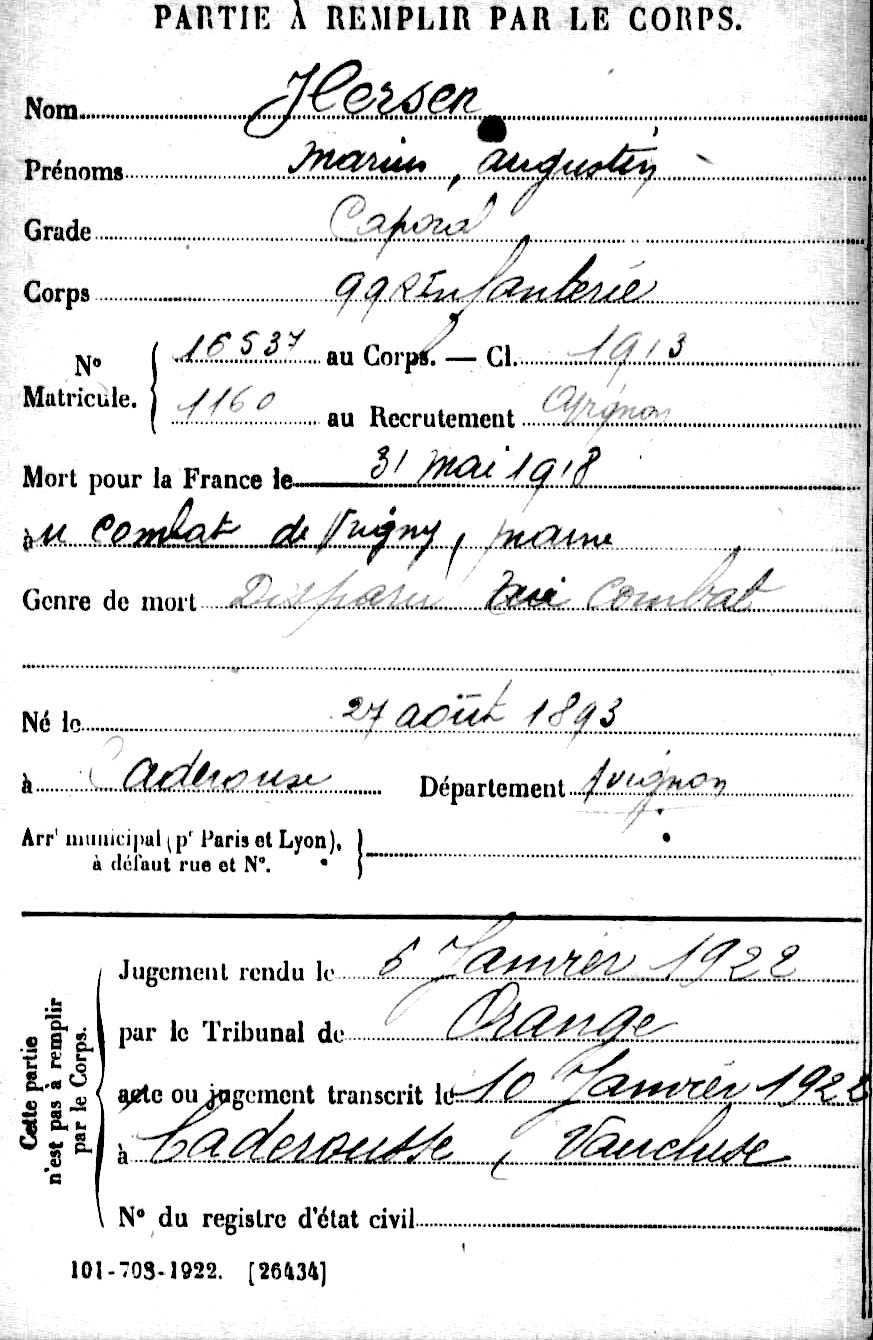 PARTIE À REMPLIR PAR LE CORPS.
Nom Hersen
Prénoms Marius, Augustin
Grade Caporal
Corps 99 R Infanterie
No Matricule. 16537 au Corps. — Cl. 1913
1160 au Recrutement Avignon
Mort pour la France le 31 Mai 1918
àu combat de Vrigny, Marne
Genre de mort Disparu au combat
Né le 27 août 1893
à Caderouse Département Avignon
Arrt municipal (pr Paris et Lyon),
à défaut rue et No.
Cette partie n'est pas à remplir par le Corps.
Jugement rendu le 5 Janvier 1922
par le Tribunal de Orange
acte ou jugement transcrit le 10 Janvier 1922
à Caderousse, Vaucluse
No du registre d'état civil
101-708-1922. [26434]